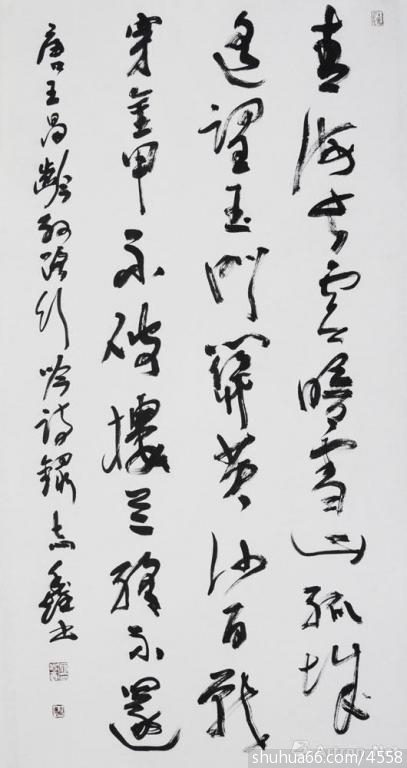 青海长雲暗雪山孤城
遥望玉门關黄沙百戰
穿金甲不破樓兰终不還
唐王昌齡行吟诗錄志鑫书
shuhua66.com/4558